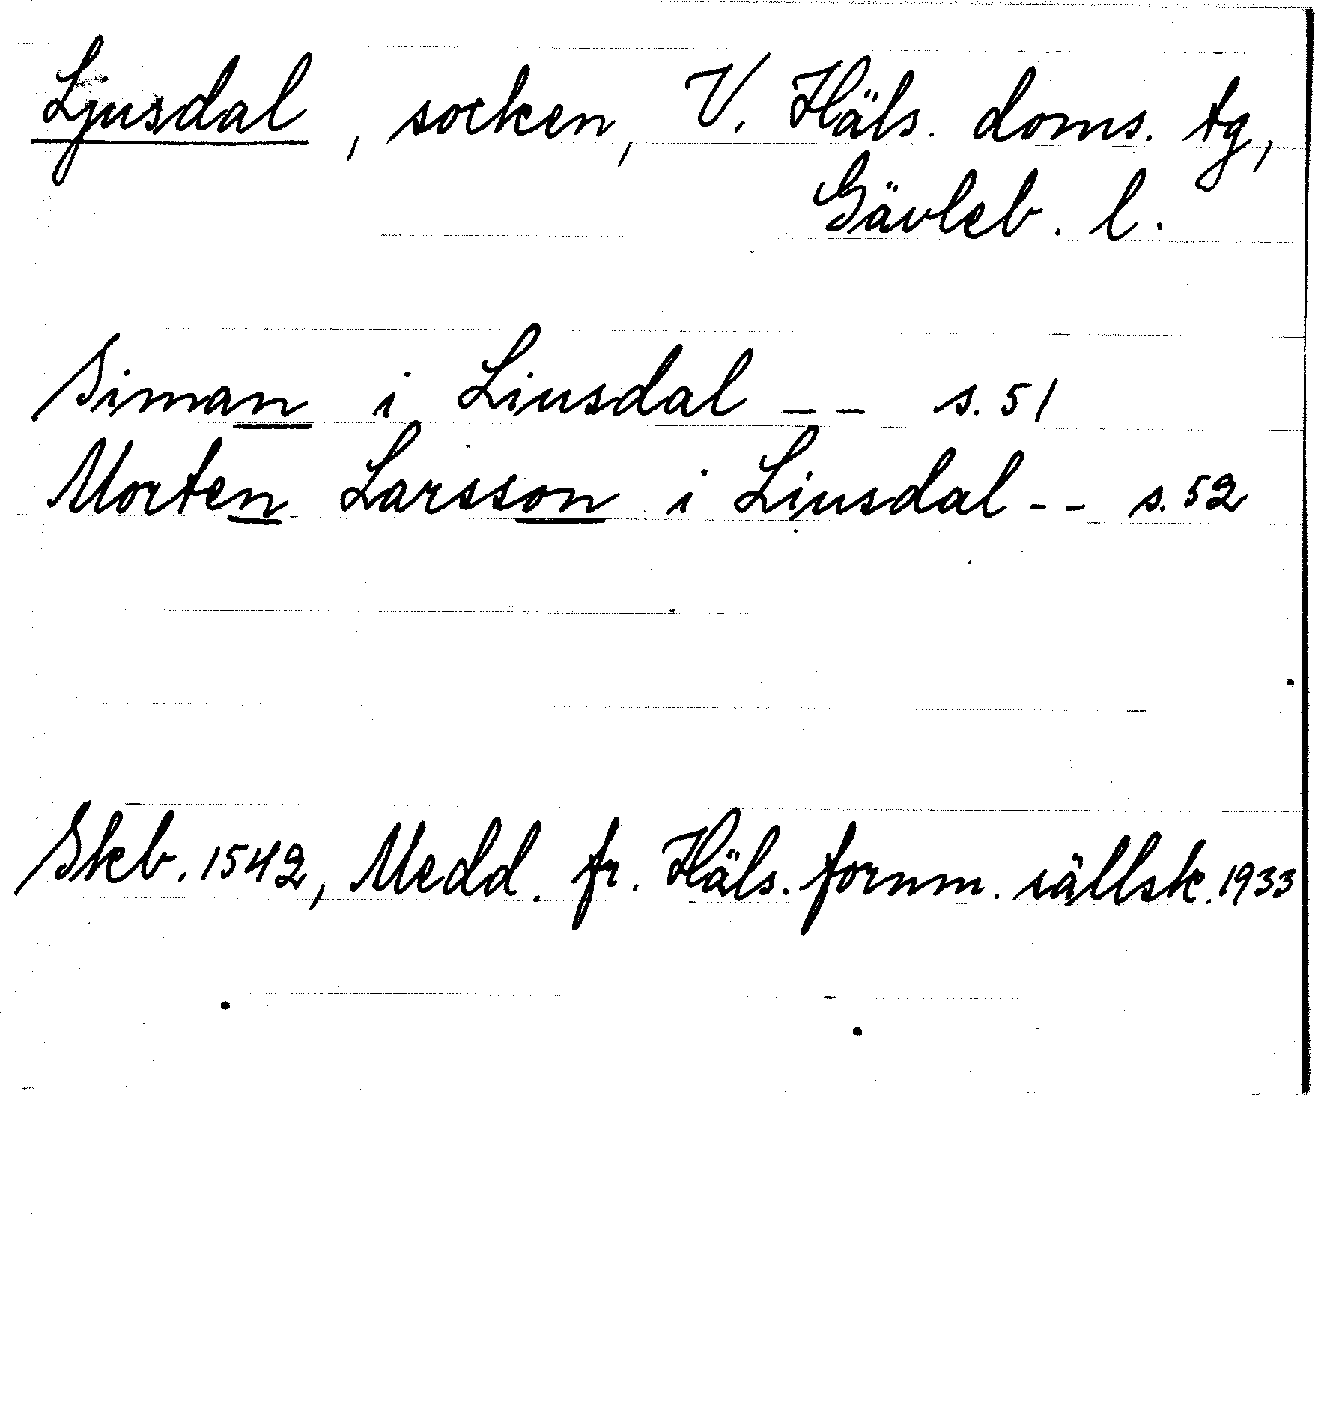 Ljusdal, socken, V. Häls. doms. tg,
Gävleb. l.
Siman i Liusdal -- s. 51
Morten Larsson i Liusdal -- s. 52
Skb. 1542, Medd. fr. Häls. fornm. sällsk. 1933